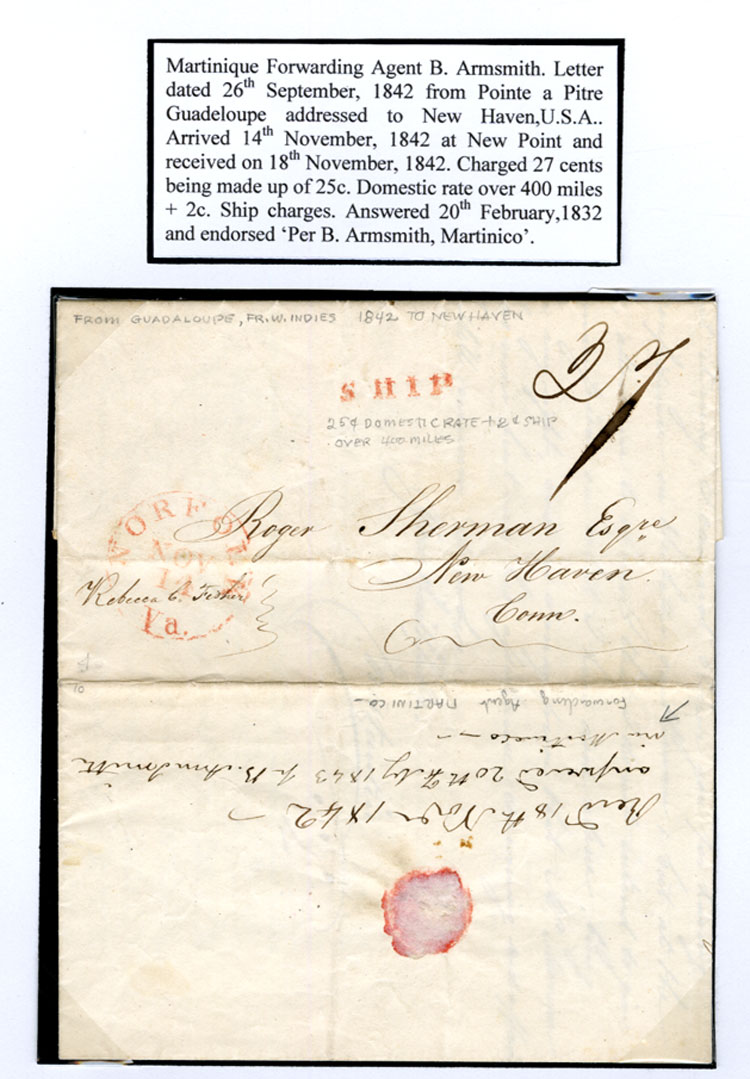 Martinique Forwarding Agent B. Armsmith. Letter
dated 26th September, 1842 from Pointe a Pitre
Guadeloupe addressed to New Haven,U.S.A..
Arrived 14th November, 1842 at New Point and
received on 18th November, 1842. Charged 27 cents
being made up of 25c. Domestic rate over 400 miles
+ 2c. Ship charges. Answered 20th February,1832
and endorsed ‘Per B. Armsmith, Martinico’.
FROM GUADALOUPE, FR.W.INDIES 1842 TO NEW HAVEN
27
SHIP
25¢ DOMESTIC RATE + 2¢ SHIP
OVER 400 MILES
NORFOLK
NOV
14
Va.
Roger Sherman Esqre
New Haven.
Conn.
Rebecca C. Fisher
Forwarding Agent MARTINICO
via Martinico
answered 20th Feby 1843 pr B. Armsmith
Recd 18th Novr 1842